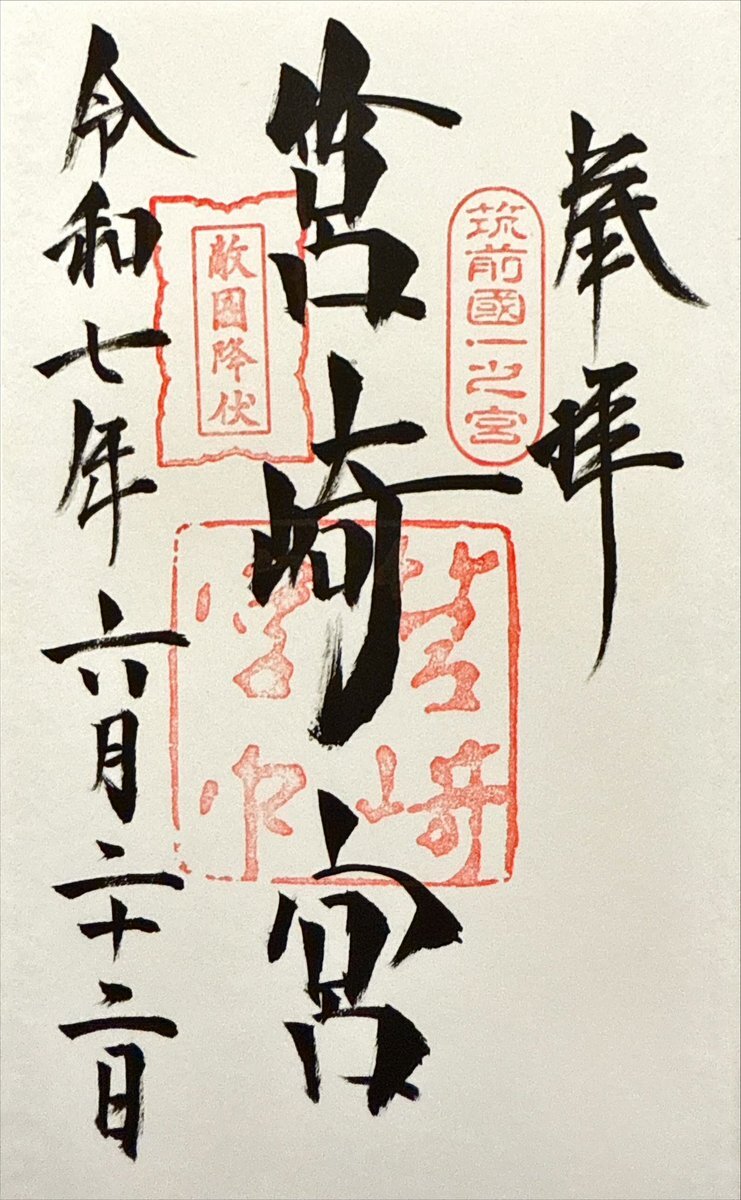 奉拝
筑前國一之宮
筥崎宮
筥崎宮印
敵国降伏
令和七年六月二十二日